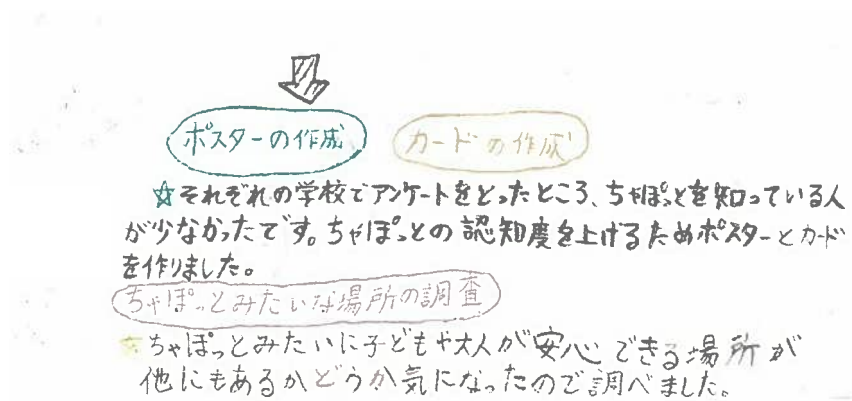 ポスターの作成 カードの作成
☆それぞれの学校でアンケートをとったところ、ちゃぽっとを知っている人
が少なかったです。ちゃぽっとの認知度を上げるためポスターとカード
を作りました。
ちゃぽっとみたいな場所の調査
☆ちゃぽっとみたいに子どもや大人が安心できる場所が
他にもあるかどうか気になったので調べました。